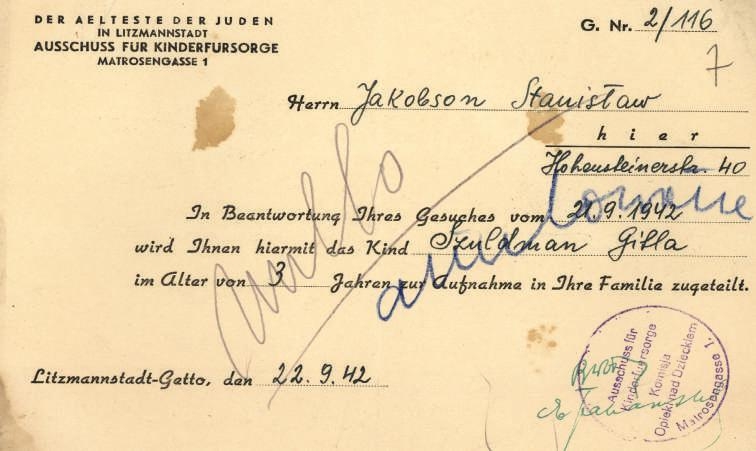 DER AELTESTE DER JUDEN
IN LITZMANNSTADT
AUSSCHUSS FÜR KINDERFÜRSORGE
MATROSENGASSE 1
G. Nr. 2/116
7
Herrn Jakobson Stanisław
hier
Hohensteinerstr. 40
In Beantwortung Ihres Gesuches vom 21.9.1942
wird Ihnen hiermit das Kind Szuldman Gitla
im Alter von 3 Jahren zur Aufnahme in Ihre Familie zugeteilt.
anulowane
Litzmannstadt-Getto, den 22.9.42
Ausschuss für
Kinderfuersorge
Komisja
Opieki nad Dzieckiem
Matrosengasse 1.